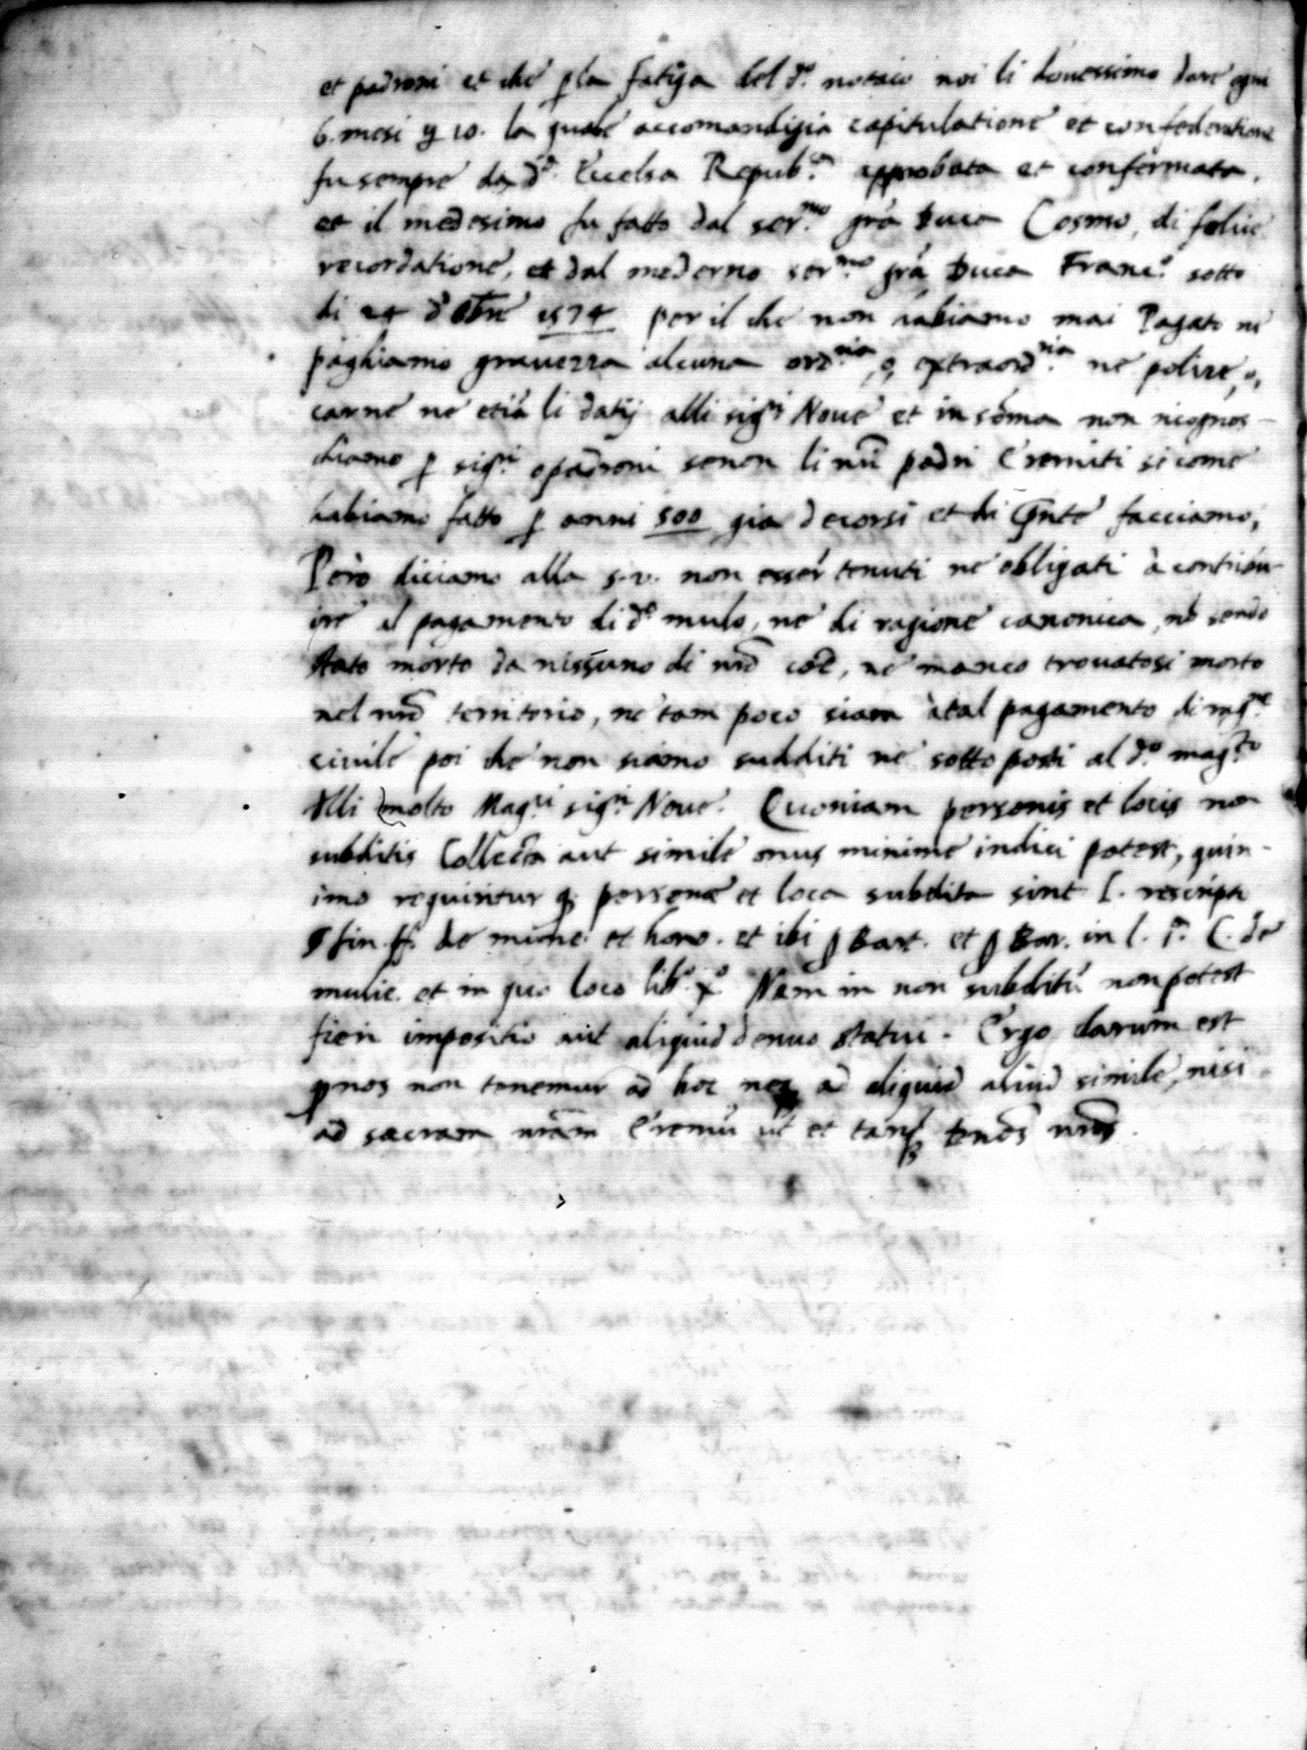 et padroni et che p la fatiga del d.º notaio noi li dovessimo dare ogni
6. mesi 10. la quale accomandigia capitulatione et confederatione
fu sempre da d.ª Eccelsa Repub.ª approbata et confermata.
et il medesimo fu fatto dal ser.mo grã Duca Cosmo, di felice
recordatione, et dal moderno ser.mo grã Duca Franc.º sotto
di 24 d 1574 per il che non habiamo mai Pagato ne
paghiamo gravezza alcuna ord.ria, o, extraord.ria ne polize, o,
carne ne etiã li datij alli sig.ri Nove et in sõma non ricognos-
chiamo p sig.ri o padroni se non li nrĩ padri Eremiti si come
habiamo fatto p anni 500 gia decorsi et di pñte facciamo,
Però diciamo alla s.v. non esser tenuti ne obligati à contribu-
ire al pagamento di d.º mulo, ne di ragione canonica, nõ sendo
stato morto da nissuno di nrõ, ne manco trovatosi morto
nel nrõ territorio, ne tam poco siam à tal pagamento di rag.ne
civile poi che non siamo sudditi ne sottoposti al d.º mag.to
alli molto Mag.ci sig.ri Nove. Quoniam personis et locis non
subditis Collecta aut simile onus minime indici potest, quin-
imo requiritur q personæ et loca subdita sint l. rescripto
§ fin. ff. de mune. et hono. et ibi p Bart. et p Bar. in l. i.ª C. de
mulie. et in quo loco lib.º x.º Nam in non subditũ non potest
fieri impositio aut aliquid denuo statui. Ergo clarum est
q nos non tenemur ad hoc neq ad aliquid aliud simile, nisi
ad sacram nrãm Eremũ ut et tanq nrõs.